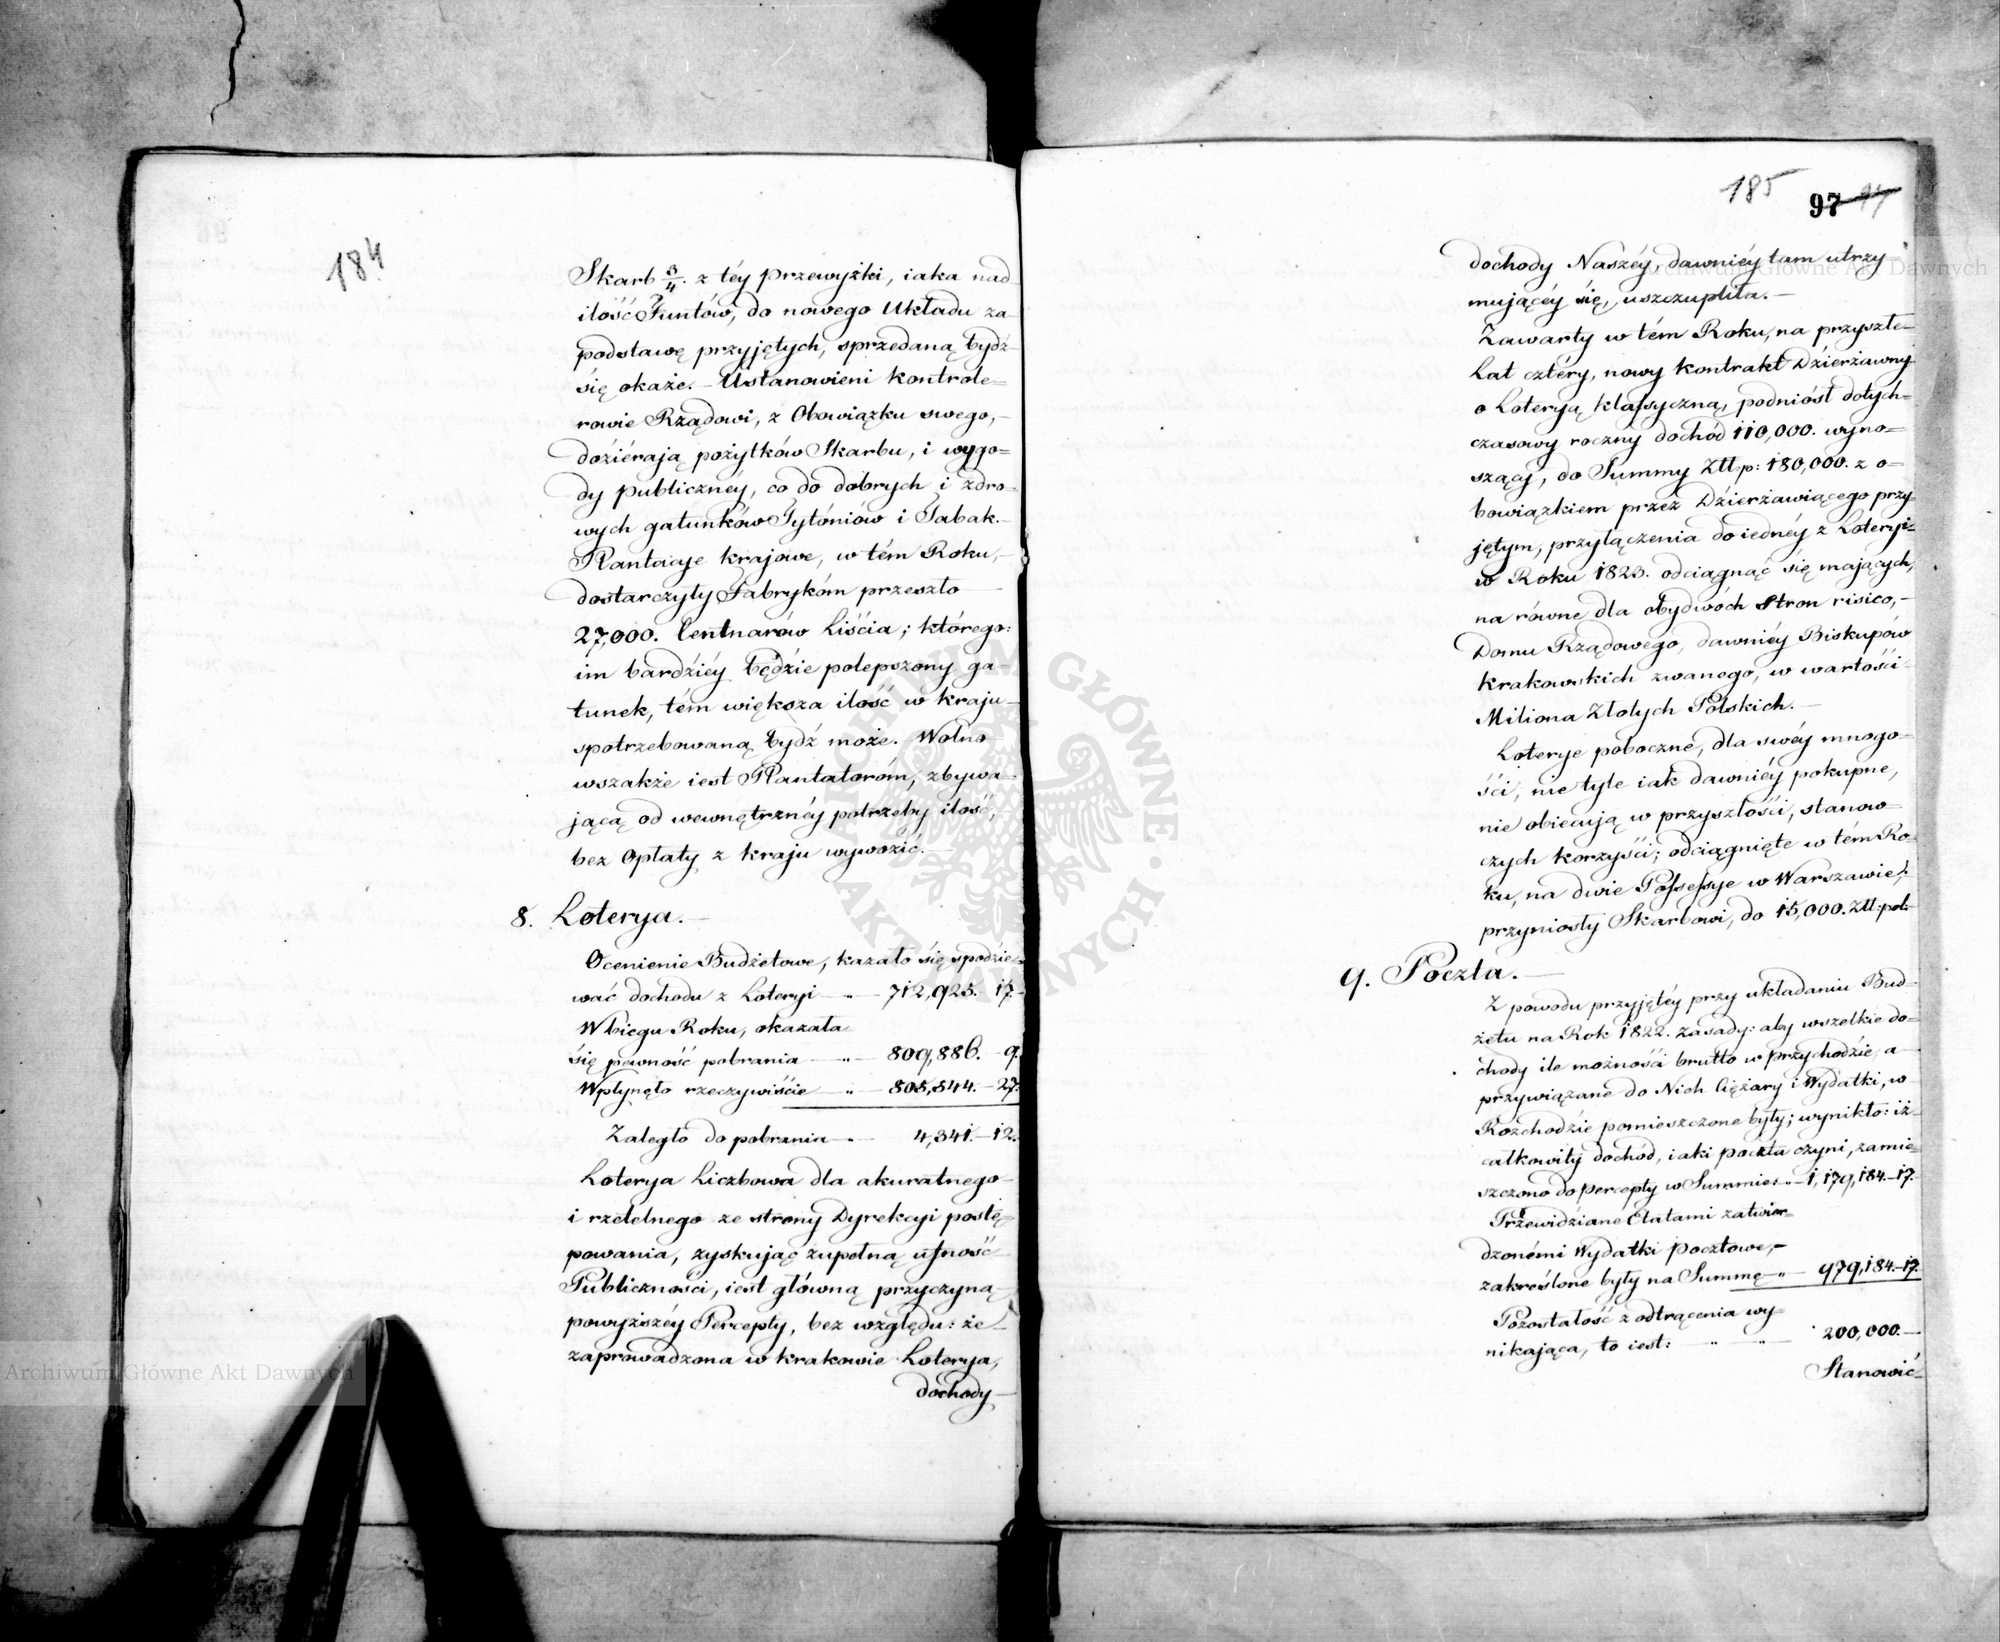 184
Skarb 3/4. z téy przewyżki, iaka nad
ilość Funtów, do nowego Układu za
podstawę przyjętych, sprzedaną bydź
się okaże. – Ustanowieni Kontrole=
rowie Rządowi, z Obowiązku swego,
doziérają pożytków Skarbu, i wygo=
dy publicznéy, co do dobrych i zdro
wych gatunków Tytóniów i Tabak. –
Plantacye krajowe, w tém Roku,
dostarczyły Fabrykóm przeszło
27,000. Centnarów Liścia; którego:
im bardziéy będzie polepszony ga-
tunek, tém większa ilość w kraju
spotrzebowaną bydź może. Wolno
wszakże iest Plantatoróm, zbywa-
jącą od wewnętrznéy potrzeby ilość,
bez Opłaty z kraju wywozić. –
8. Loterya. –
Ocenienie Budżetowe, kazało się spodzie-
wać dochodu z Loteryi – „ – 712,925. – 17. –
W biegu Roku, okazała
się pewność pobrania – „ – 809,886. – 9.
Wpłynęło rzeczywiście – „ – 805,544. – 27.
Zaległo do pobrania – „ – 4,341. – 12.
Loterya Liczbowa dla akuratnego
i rzetelnego ze strony Dyrekcyi postę-
powania, zyskując zupełną ufność
Publiczności, iest główną przyczyną
powyższéy Percepty, bez względu: że
zaprowadzona w Krakowie Loterya,
dochody
185
97
dochody Naszéy, dawniéy tam utrzy
mującéy się, uszczupliła. –
Zawarty w tém Roku, na przyszłe
Lat cztéry, nowy kontrakt Dzierżawny
o Loteryą klassyczną, podniósł dotych=
czasowy roczny dochód 110,000. wyno=
szący, do Summy Złł:p: 180,000. z o=
bowiązkiem przez Dzierżawiącego przy
jętym, przyłączenia do iednéy z Loteryi
w Roku 1823. odciągnąć się mających,
na równe dla obydwóch Stron risico, –
Domu Rządowego, dawniéy Biskupów
Krakowskich zwanego, w wartości
Miliona Złotych Polskich. –
Loterye poboczne, dla swéy mnogo-
ści, nie tyle iak dawniéy pokupne,
nie obiecują w przyszłości, stanow=
czych korzyści; odciągnięte w tém Ro
ku, na dwie Possessye w Warszawie,
przyniosły Skarbowi, do 15,000. Złł: pol:
9. Poczta. –
Z powodu przyjętéy przy układaniu Bud=
żetu na Rok 1822. zasady: aby wszelkie do=
chody ile możności brutto w przychodzie, a
przywiązane do Nich Ciężary i Wydatki, w
Rozchodzie pomieszczone były; wynikło: iż
całkowity dochód, iaki poczta czyni, zamie
szczono do percepty w Summie „ – 1,179,184. – 17.
Przewidziane Etatami zatwier=
dzonémi Wydatki pocztowe, –
zakreślone były na Summę – „ – 979,184. – 17.
Pozostałość z odtrącenia wy
nikająca, to iest: – „ – „ 200,000. –
Stanowić
Archiwum Główne Akt Dawnych
Archiwum Główne Akt Dawnych
ARCHIWUM GŁÓWNE AKT DAWNYCH